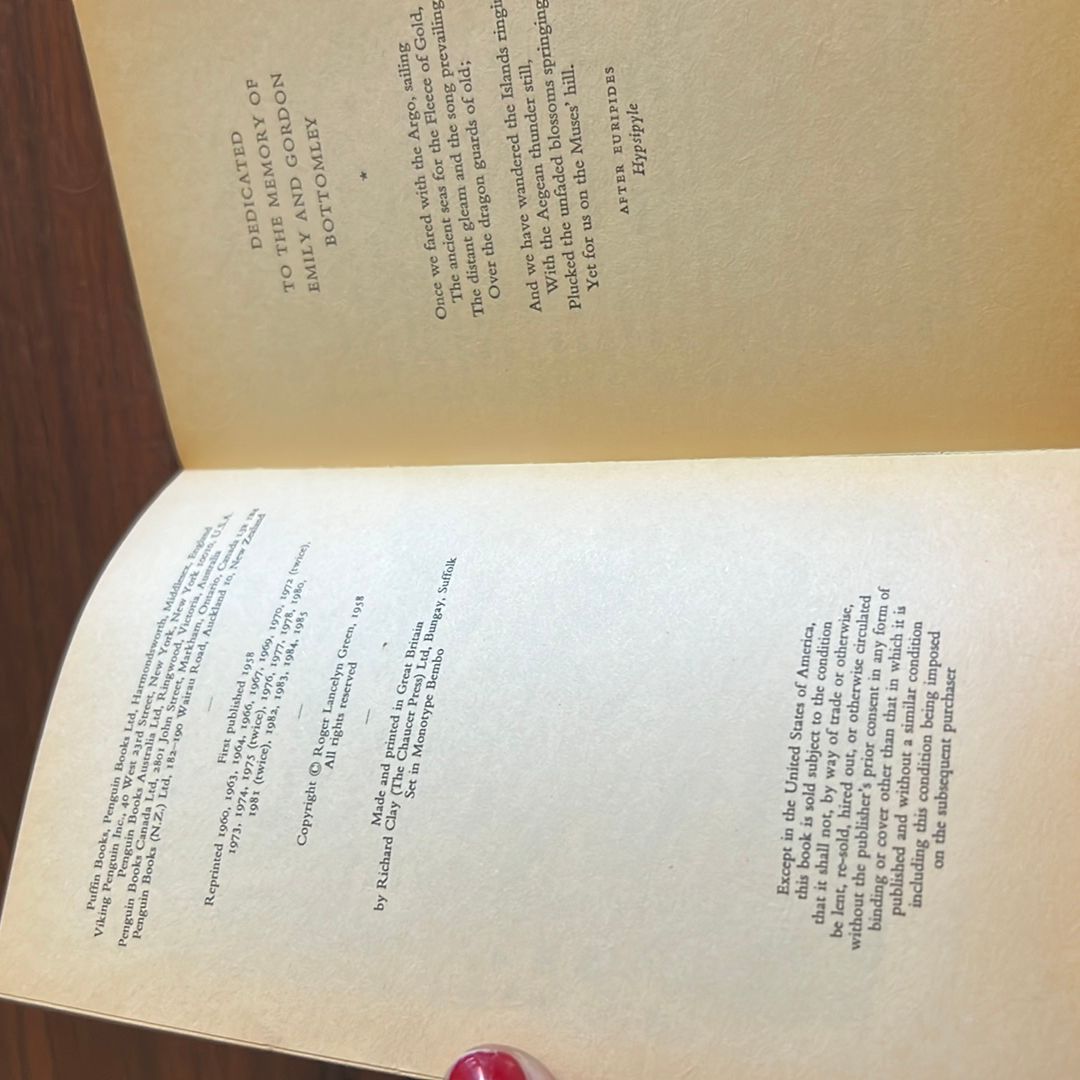 Puffin Books, Penguin Books Ltd, Harmondsworth, Middlesex, England
Viking Penguin Inc., 40 West 23rd Street, New York, New York 10010, U.S.A.
Penguin Books Australia Ltd, Ringwood, Victoria, Australia
Penguin Books Canada Ltd, 2801 John Street, Markham, Ontario, Canada L3R 1B4
Penguin Books (N.Z.) Ltd, 182–190 Wairau Road, Auckland 10, New Zealand
—
First published 1958
Reprinted 1960, 1963, 1964, 1966, 1967, 1969, 1970, 1972 (twice),
1973, 1974, 1975 (twice), 1976, 1977, 1978, 1980,
1981 (twice), 1982, 1983, 1984, 1985
—
Copyright © Roger Lancelyn Green, 1958
All rights reserved
—
Made and printed in Great Britain
by Richard Clay (The Chaucer Press) Ltd, Bungay, Suffolk
Set in Monotype Bembo
Except in the United States of America,
this book is sold subject to the condition
that it shall not, by way of trade or otherwise,
be lent, re-sold, hired out, or otherwise circulated
without the publisher's prior consent in any form of
binding or cover other than that in which it is
published and without a similar condition
including this condition being imposed
on the subsequent purchaser
DEDICATED
TO THE MEMORY OF
EMILY AND GORDON
BOTTOMLEY
*
Once we fared with the Argo, sailing
The ancient seas for the Fleece of Gold,
The distant gleam and the song prevailing
Over the dragon guards of old;
And we have wandered the Islands ringi
With the Aegean thunder still,
Plucked the unfaded blossoms springing
Yet for us on the Muses' hill.
AFTER EURIPIDES
Hypsipyle